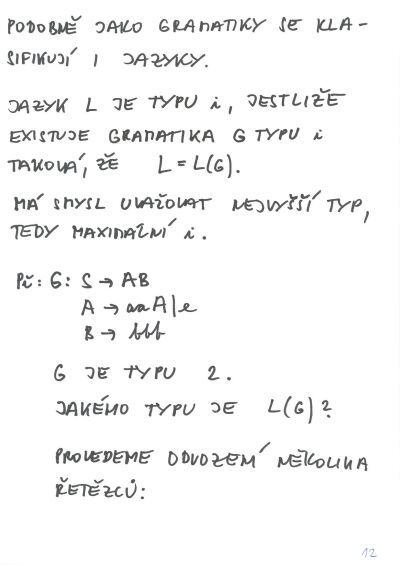 PODOBNĚ JAKO GRAMATIKY SE KLA-
SIFIKUJÍ I JAZYKY.
JAZYK L JE TYPU i, JESTLIŽE
EXISTUJE GRAMATIKA G TYPU i
TAKOVÁ, ŽE L = L(G).
MÁ SMYSL UVAŽOVAT NEJVYŠŠÍ TYP,
TEDY MAXIMÁLNÍ i.
Př: G: S → AB
A → aaA|e
B → bbb
G JE TYPU 2.
JAKÉHO TYPU JE L(G)?
PROVEDEME ODVOZENÍ NĚKOLIKA
ŘETĚZCŮ:
12